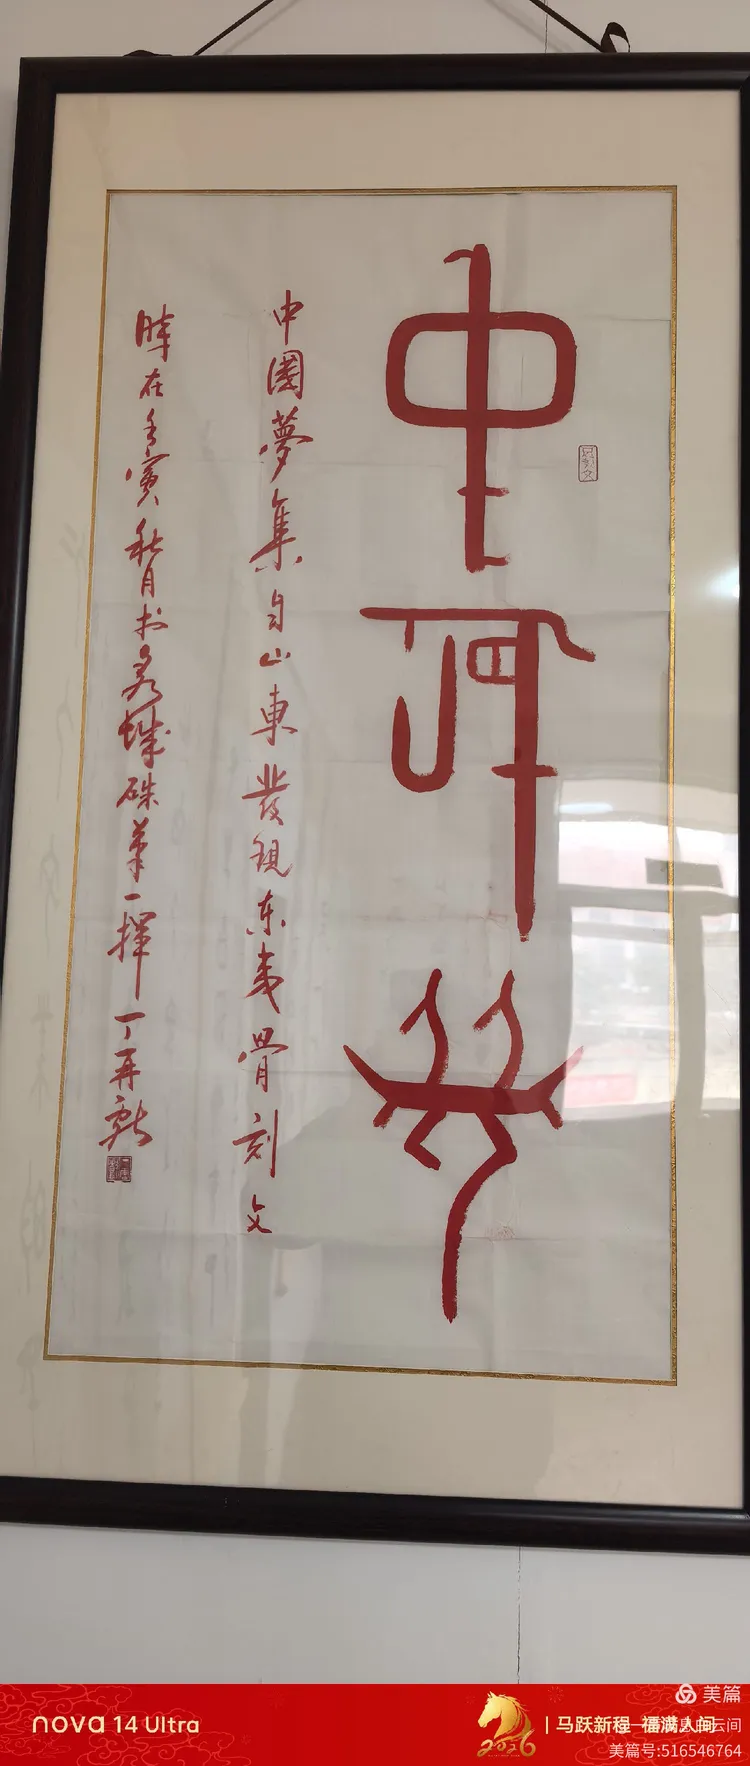 中国梦
中國夢集自山東發現东夷骨刻文
時在壬寅秋月书於 城硃笔一挥丁再献
nova 14 Ultra
2026
马跃新程 福满人间
美篇
美篇号:516546764